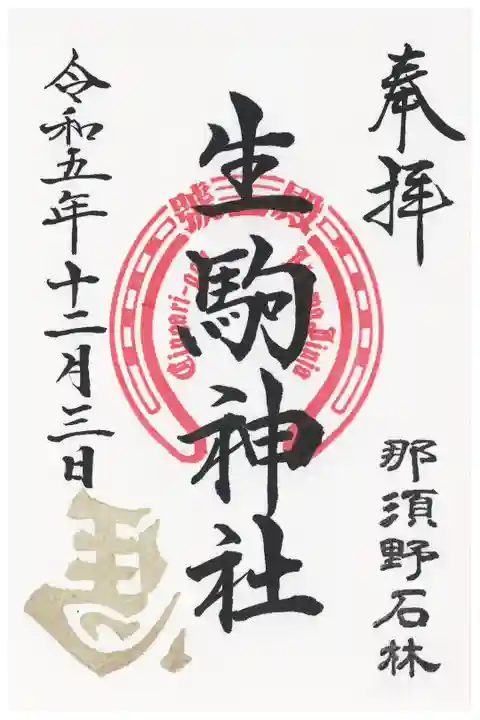 奉拝
那須野石林
生駒神社
殿三號
Ikoma Jinja
令和五年十二月三日
馬